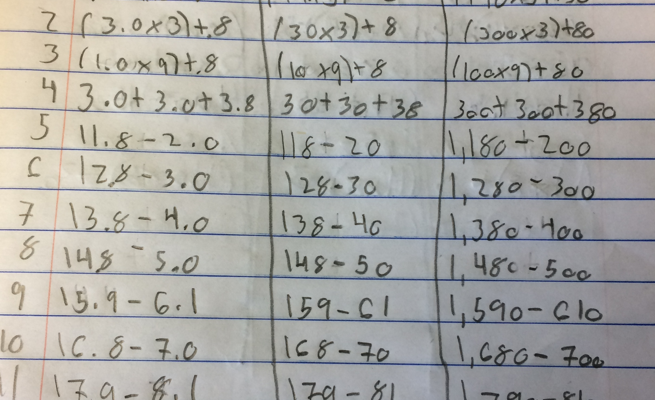 2 (3.0x3)+.8 (30x3)+8 (300x3)+80
3 (1.0x9)+.8 (10x9)+8 (100x9)+80
4 3.0+3.0+3.8 30+30+38 300+300+380
5 11.8-2.0 118-20 1,180-200
6 12.8-3.0 128-30 1,280-300
7 13.8-4.0 138-40 1,380-400
8 14.8-5.0 148-50 1,480-500
9 15.9-6.1 159-61 1,590-610
10 16.8-7.0 168-70 1,680-700
11 17.9-8.1 179-81